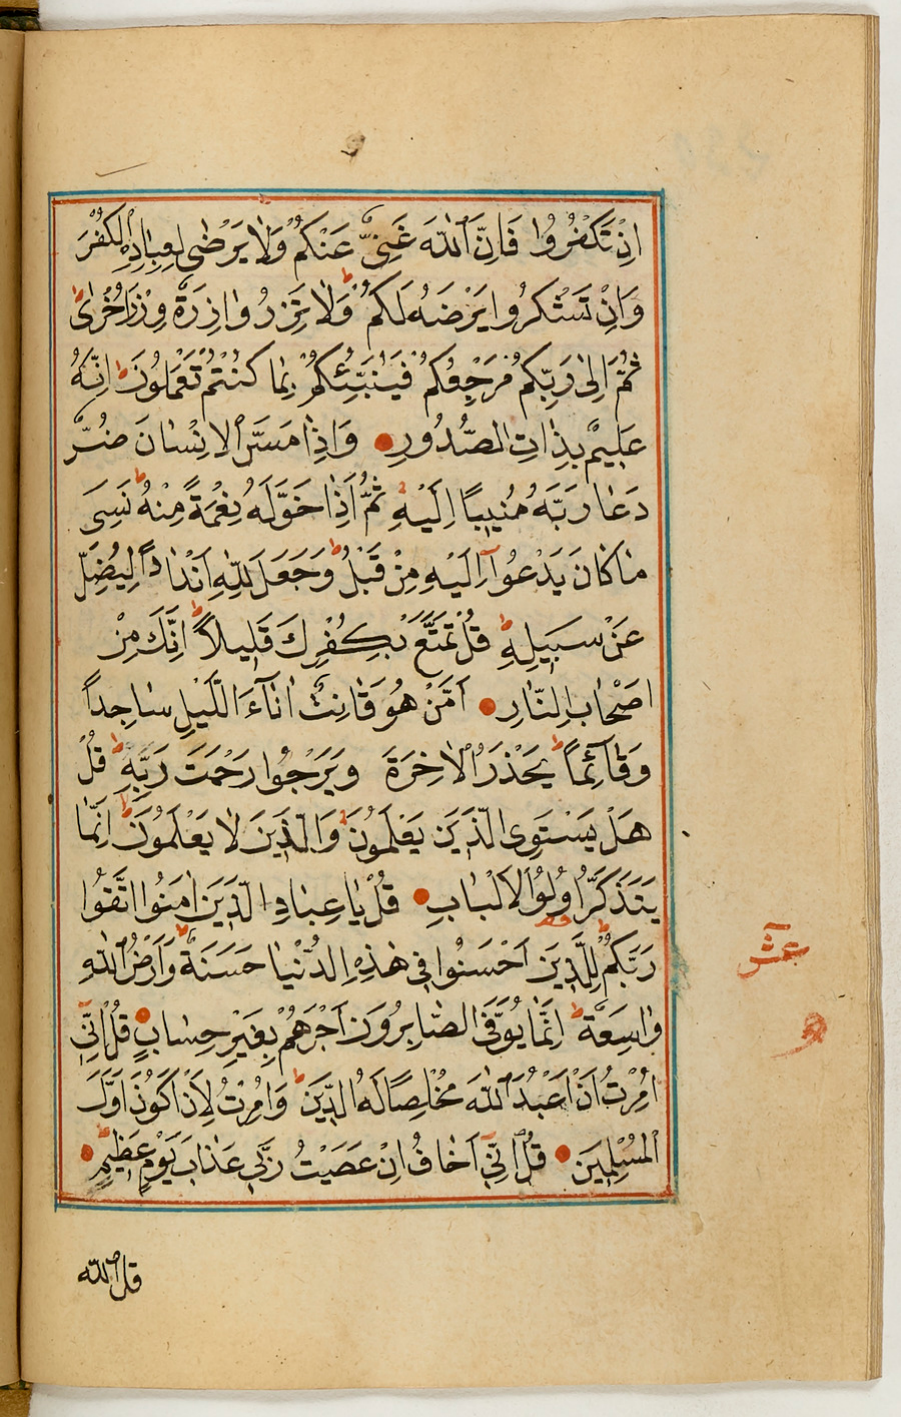 اِنْ تَكْفُرُوا فَاِنَّ اللّٰهَ غَنِيٌّ عَنْكُمْ وَلَا يَرْضٰى لِعِبَادِهِ الْكُفْرَ
وَاِنْ تَشْكُرُوا يَرْضَهُ لَكُمْ ط وَلَا تَزِرُ وَازِرَةٌ وِزْرَ اُخْرٰى ط
ثُمَّ اِلٰى رَبِّكُمْ مَرْجِعُكُمْ فَيُنَبِّئُكُمْ بِمَا كُنْتُمْ تَعْمَلُونَ ط اِنَّهُ
عَلِيمٌ بِذَاتِ الصُّدُورِ وَاِذَا مَسَّ الْاِنْسَانَ ضُرٌّ
دَعَا رَبَّهُ مُنِيبًا اِلَيْهِ ثُمَّ اِذَا خَوَّلَهُ نِعْمَةً مِنْهُ نَسِيَ
مَا كَانَ يَدْعُوا اِلَيْهِ مِنْ قَبْلُ وَجَعَلَ لِلّٰهِ اَنْدَادًا لِيُضِلَّ
عَنْ سَبِيلِهِ ط قُلْ تَمَتَّعْ بِكُفْرِكَ قَلِيلًا ط اِنَّكَ مِنْ
اَصْحَابِ النَّارِ اَمَّنْ هُوَ قَانِتٌ اٰنَاءَ الَّيْلِ سَاجِدًا
وَقَائِمًا يَحْذَرُ الْاٰخِرَةَ وَيَرْجُوا رَحْمَتَ رَبِّهِ ط قُلْ
هَلْ يَسْتَوِى الَّذِينَ يَعْلَمُونَ وَالَّذِينَ لَا يَعْلَمُونَ ط اِنَّمَا
يَتَذَكَّرُ اُولُوا الْاَلْبَابِ قُلْ يَا عِبَادِ الَّذِينَ اٰمَنُوا اتَّقُوا
رَبَّكُمْ ط لِلَّذِينَ اَحْسَنُوا فِى هٰذِهِ الدُّنْيَا حَسَنَةٌ ط وَاَرْضُ اللّٰهِ
عشر
وَاسِعَةٌ ط اِنَّمَا يُوَفَّى الصَّابِرُونَ اَجْرَهُمْ بِغَيْرِ حِسَابٍ قُلْ اِنِّى
اُمِرْتُ اَنْ اَعْبُدَ اللّٰهَ مُخْلِصًا لَهُ الدِّينَ وَاُمِرْتُ لِاَنْ اَكُونَ اَوَّلَ
الْمُسْلِمِينَ قُلْ اِنِّى اَخَافُ اِنْ عَصَيْتُ رَبِّى عَذَابَ يَوْمٍ عَظِيمٍ
قل الله